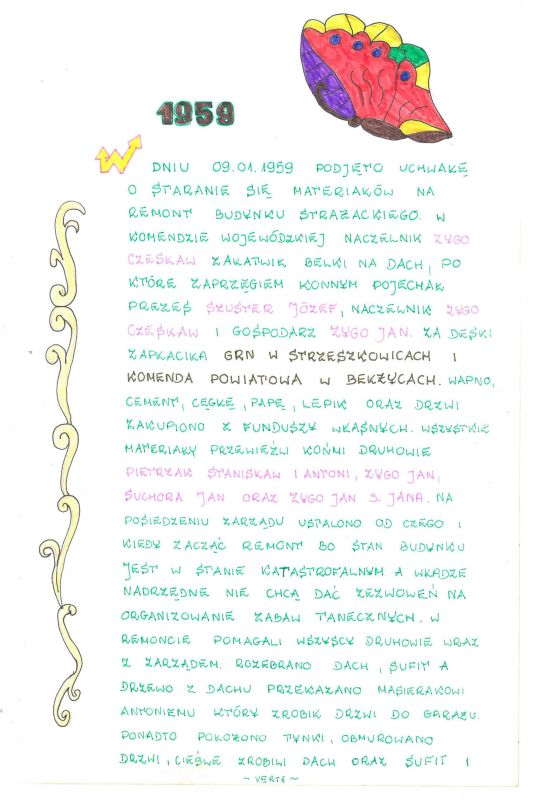 1959
W DNIU 09.01.1959 PODJĘTO UCHWAŁĘ
O STARANIE SIĘ MATERIAŁÓW NA
REMONT BUDYNKU STRAŻACKIEGO. W
KOMENDZIE WOJEWÓDZKIEJ NACZELNIK ŻYGO
CZESŁAW ZAŁATWIŁ BELKI NA DACH, PO
KTÓRE ZAPRZĘGIEM KONNYM POJECHAŁ
PREZES SZUSTER JÓZEF, NACZELNIK ŻYGO
CZESŁAW I GOSPODARZ ŻYGO JAN. ZA DESKI
ZAPŁACIŁA GRN W STRZESZKOWICACH I
KOMENDA POWIATOWA W BEŁŻYCACH. WAPNO,
CEMENT, CEGŁĘ, PAPĘ, LEPIK ORAZ DRZWI
ZAKUPIONO Z FUNDUSZY WŁASNYCH. WSZYSTKIE
MATERIAŁY PRZEWIEŹLI KOŃMI DRUHOWIE
PIETRZAK STANISŁAW I ANTONI, ŻYGO JAN,
SUCHORA JAN ORAZ ŻYGO JAN S. JANA. NA
POSIEDZENIU ZARZĄDU USTALONO OD CZEGO I
KIEDY ZACZĄĆ REMONT BO STAN BUDYNKU
JEST W STANIE KATASTROFALNYM A WŁADZE
NADRZĘDNE NIE CHCĄ DAĆ ZEZWOLEŃ NA
ORGANIZOWANIE ZABAW TANECZNYCH. W
REMONCIE POMAGALI WSZYSCY DRUHOWIE WRAZ
Z ZARZĄDEM. ROZEBRANO DACH, SUFIT A
DRZEWO Z DACHU PRZEKAZANO MASIERAKOWI
ANTONIEMU KTÓRY ZROBIŁ DRZWI DO GARAŻU
PONADTO POŁOŻONO TYNKI, OBMUROWANO
DRZWI, CIEŚLE ZROBILI DACH ORAZ SUFIT I
~ VERTE ~